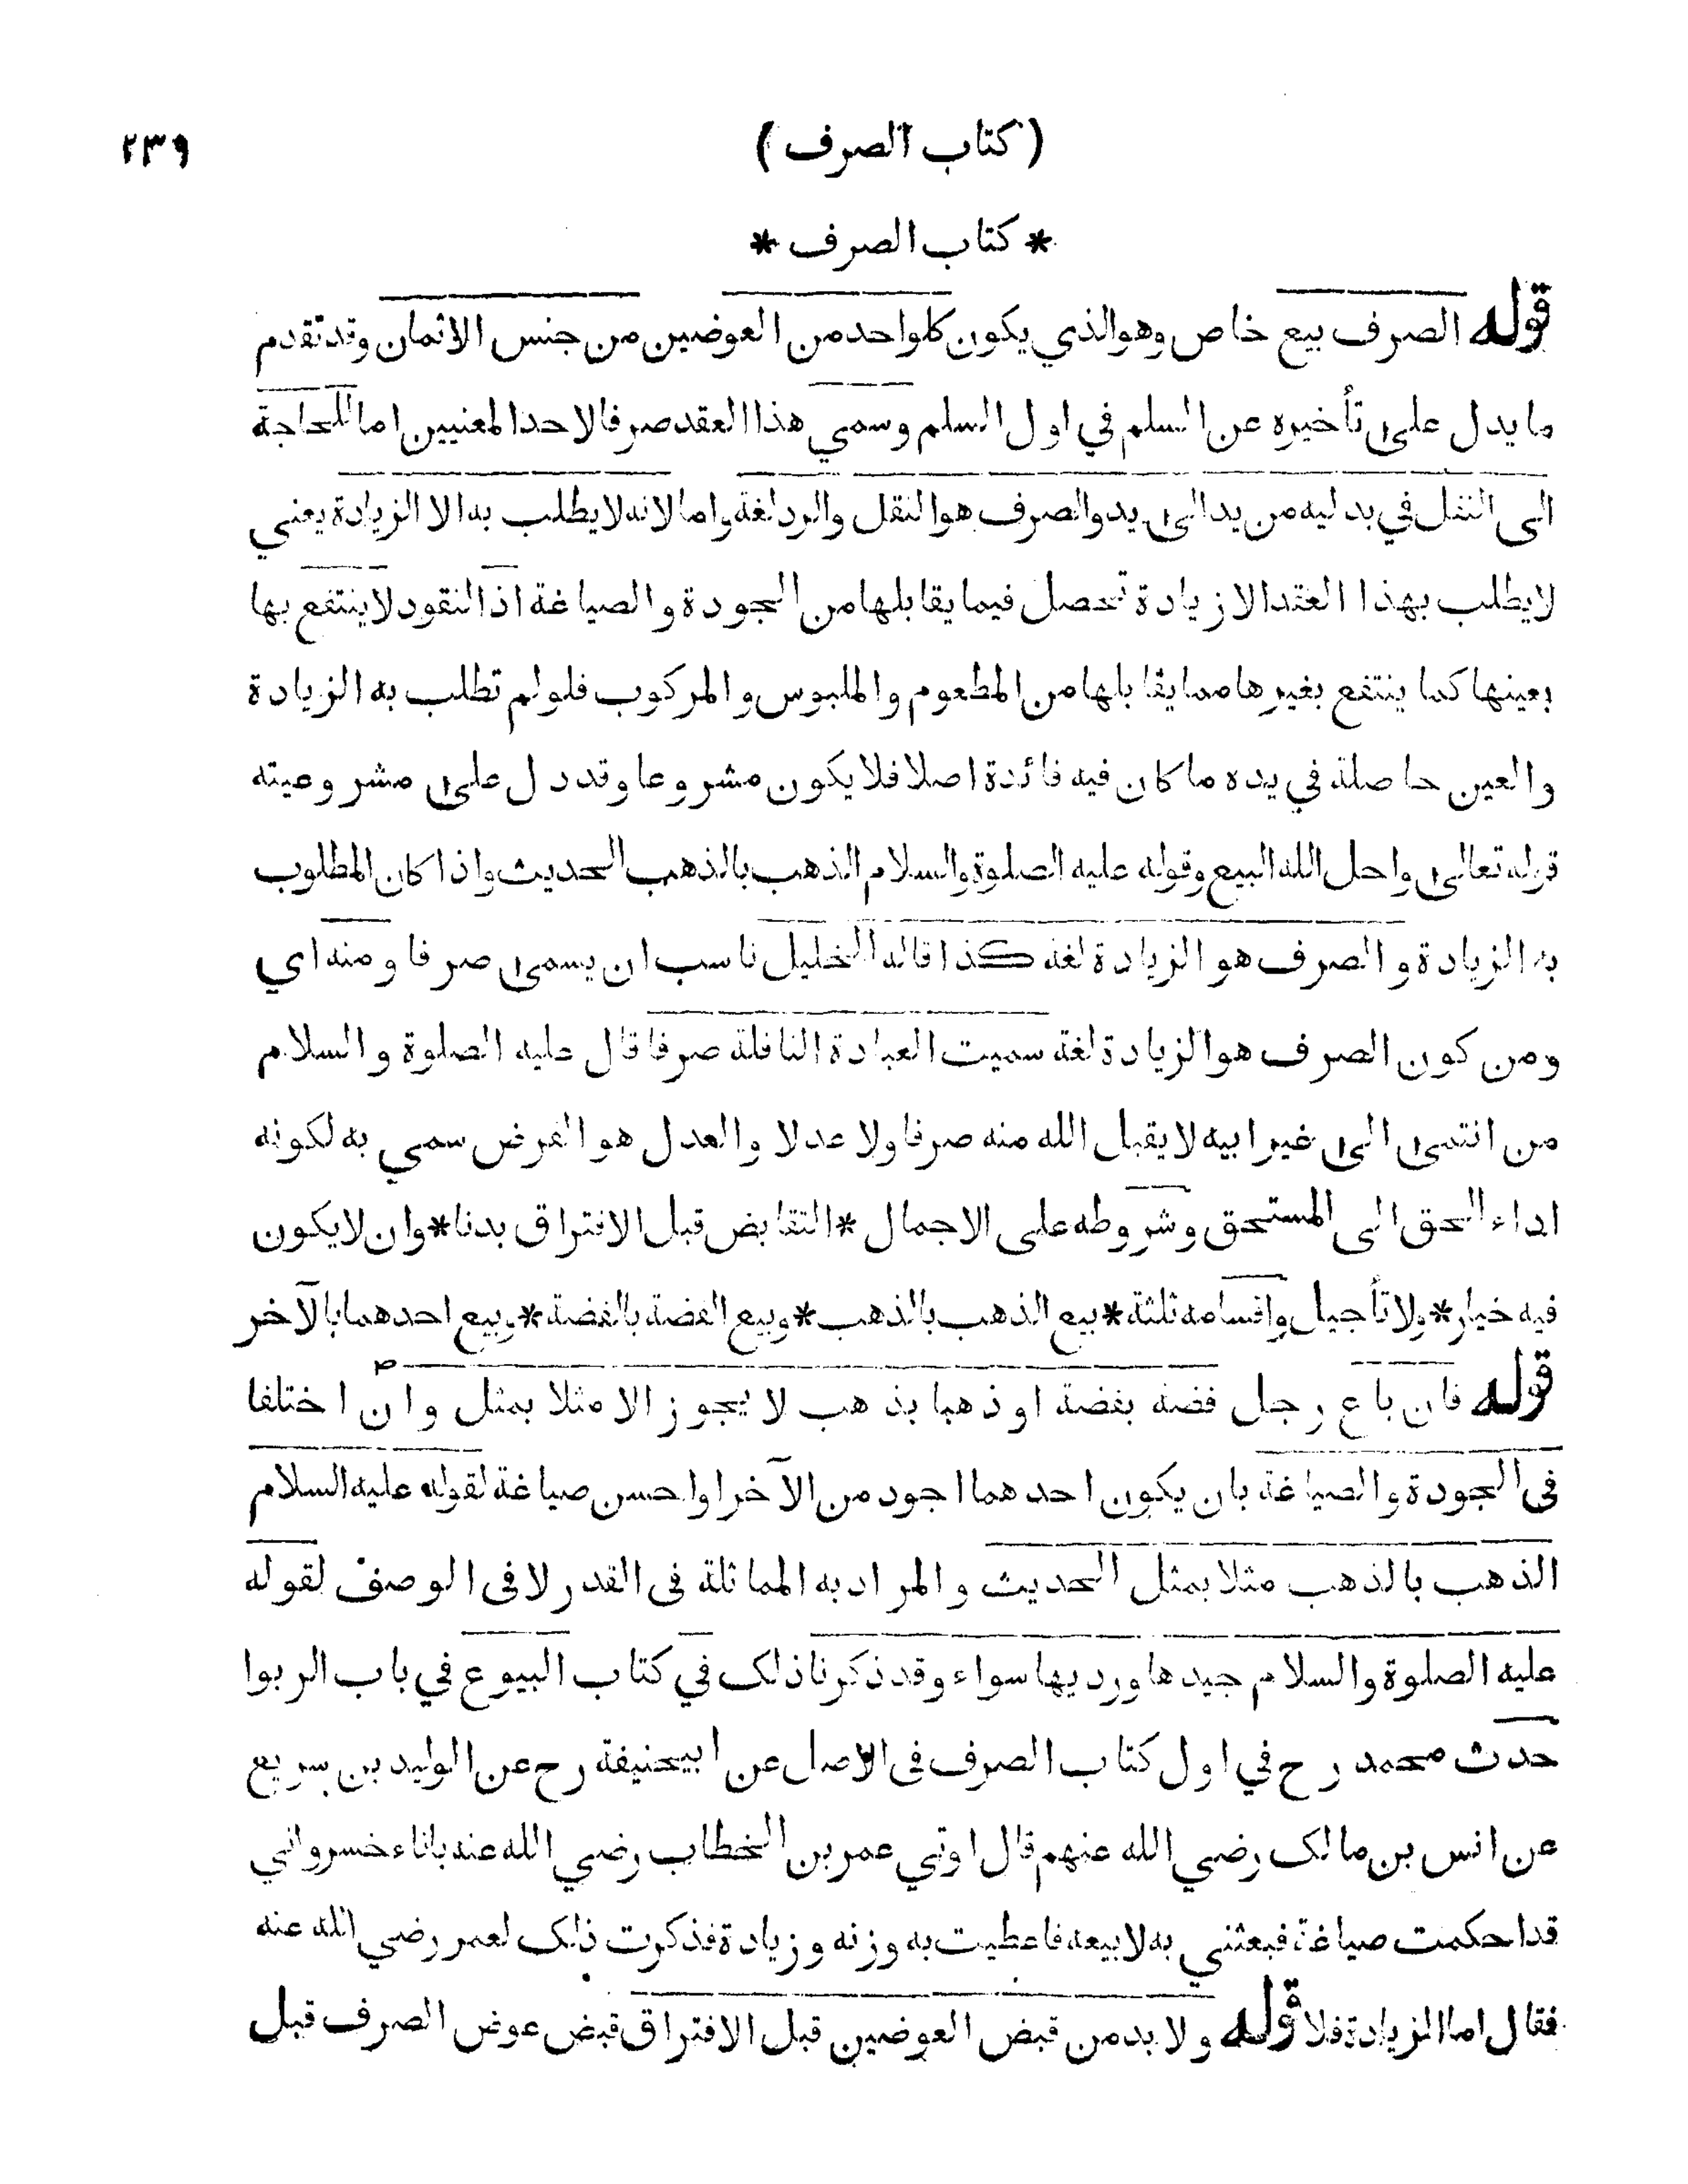 (كتاب الصرف)
٢٣٩
* كتاب الصرف *
قوله الصرف بيع خاص وهوالذي يكون كلواحد من العوضين من جنس الاثمان وقد تقدم
ما يدل على تأخيره عن السلم في اول السلم وسمي هذا العقد صرفا لاحد المعنيين اما للحاجة
الى النقل في بدليه من يد الى يد والصرف هوالنقل والرد لغة واما لانه لا يطلب به الا الزيادة يعني
لا يطلب بهذا العقد الا زيادة تحصل فيما يقابلها من الجودة والصياغة اذ النقود لا ينتفع بها
بعينها كما ينتفع بغيرها مما يقابلها من المطعوم والملبوس والمركوب فلو لم تطلب به الزيادة
والعين حاصلة في يده ما كان فيه فائدة اصلا فلا يكون مشروعا وقد دل على مشروعيته
قوله تعالى واحل الله البيع وقوله عليه الصلوة والسلام الذهب بالذهب الحديث واذا كان المطلوب
به الزيادة والصرف هو الزيادة لغة كذا قاله الخليل ناسب ان يسمى صرفا ومنه اي
ومن كون الصرف هوالزيادة لغة سميت العبادة النافلة صرفا قال عليه الصلوة والسلام
من انتمى الى غير ابيه لا يقبل الله منه صرفا ولا عدلا والعدل هو الفرض سمي به لكونه
اداء الحق الى المستحق وشروطه على الاجمال * التقابض قبل الافتراق بدنا * وان لا يكون
فيه خيار * ولا تأجيل واقسامه ثلثة * بيع الذهب بالذهب * وبيع الفضة بالفضة * وبيع احدهما بالآخر
قوله فان باع رجل فضة بفضة او ذهبا بذهب لا يجوز الا مثلا بمثل وان اختلفا
فى الجودة والصياغة بان يكون احدهما اجود من الآخر او احسن صياغة لقوله عليه السلام
الذهب بالذهب مثلا بمثل الحديث والمراد به المماثلة فى القدر لا فى الوصف لقوله
عليه الصلوة والسلام جيدها ورديها سواء وقد ذكرنا ذلك في كتاب البيوع في باب الربوا
حدث محمد رح في اول كتاب الصرف فى الاصل عن ابيحنيفة رح عن الوليد بن سريع
عن انس بن مالك رضي الله عنهم قال اوتي عمر بن الخطاب رضي الله عنه باناء خسرواني
قد احكمت صياغة فبعثني به لابيعه فاعطيت به وزنه وزيادة فذكرت ذلك لعمر رضي الله عنه
فقال اما الزيادة فلا قوله ولا بد من قبض العوضين قبل الافتراق قبض عوض الصرف قبل